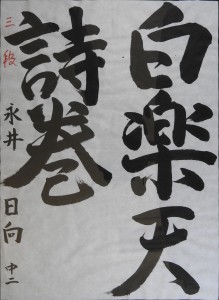 白楽天
詩巻
三級
永井日向 中二